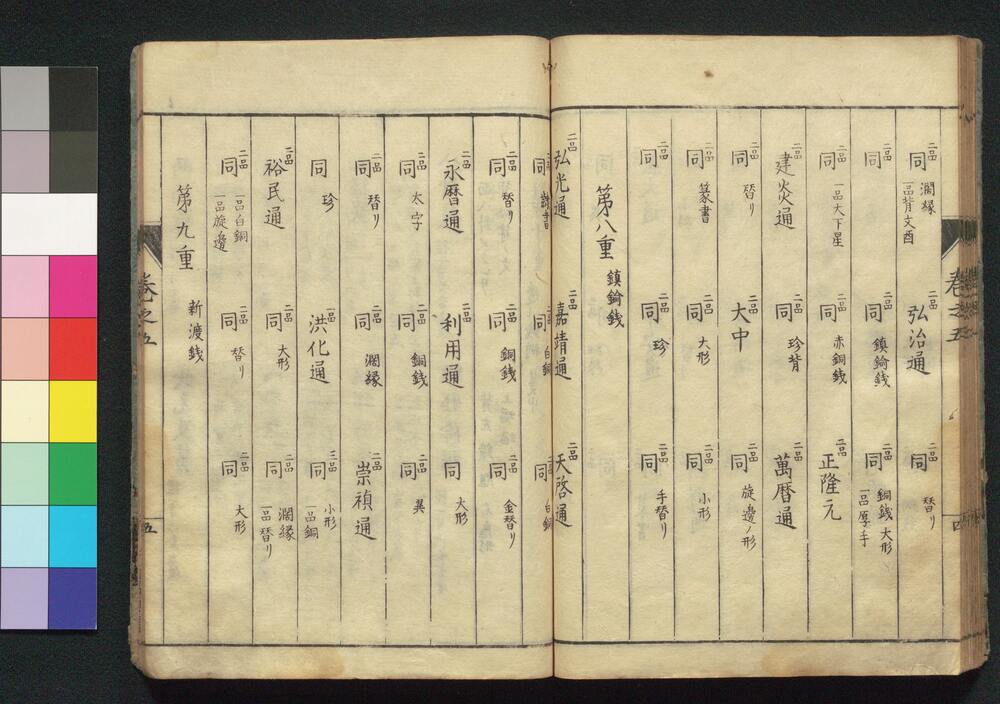 卷之五 四
二品 同 濶縁 一品背文酉 二品 弘治通 二品 同 替り
二品 同 二品 同 鎮鍮銭 二品 同 銅銭 大形 一品厚手
二品 同 一品大下星 二品 同 赤銅銭 二品 正隆元
二品 建炎通 二品 同 珍背 二品 萬暦通
二品 同 替り 大中 二品 同 旋邊ノ形
二品 同 篆書 二品 同 大形 二品 同 小形
二品 同 二品 同 珍 二品 同 手替り
第八重 鎮鍮銭
二品 弘光通 二品 嘉靖通 二品 天啓通
同 同 白銅 同 白銅
二品 同 替り 二品 同 銅銭 二品 同 金替り
二品 永暦通 二品 利用通 同 大形
二品 同 太字 二品 同 銅銭 二品 同 異
二品 同 替り 二品 同 濶縁 二品 崇禎通
同 珍 二品 洪化通 三品 同 小形 一品銅
二品 裕民通 二品 同 大形 二品 同 濶縁 一品替り
二品 同 一品白銅 一品旋邊 二品 同 替り 二品 同 大形
第九重 新渡銭
卷之五 五